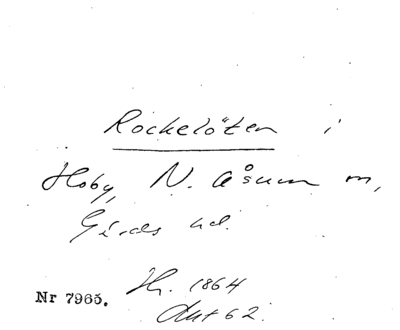 Rockelöten i
Hoby, N. Åsum m,
Gärds hd.
Hr. 1864
Nr 7965.
dut 62.